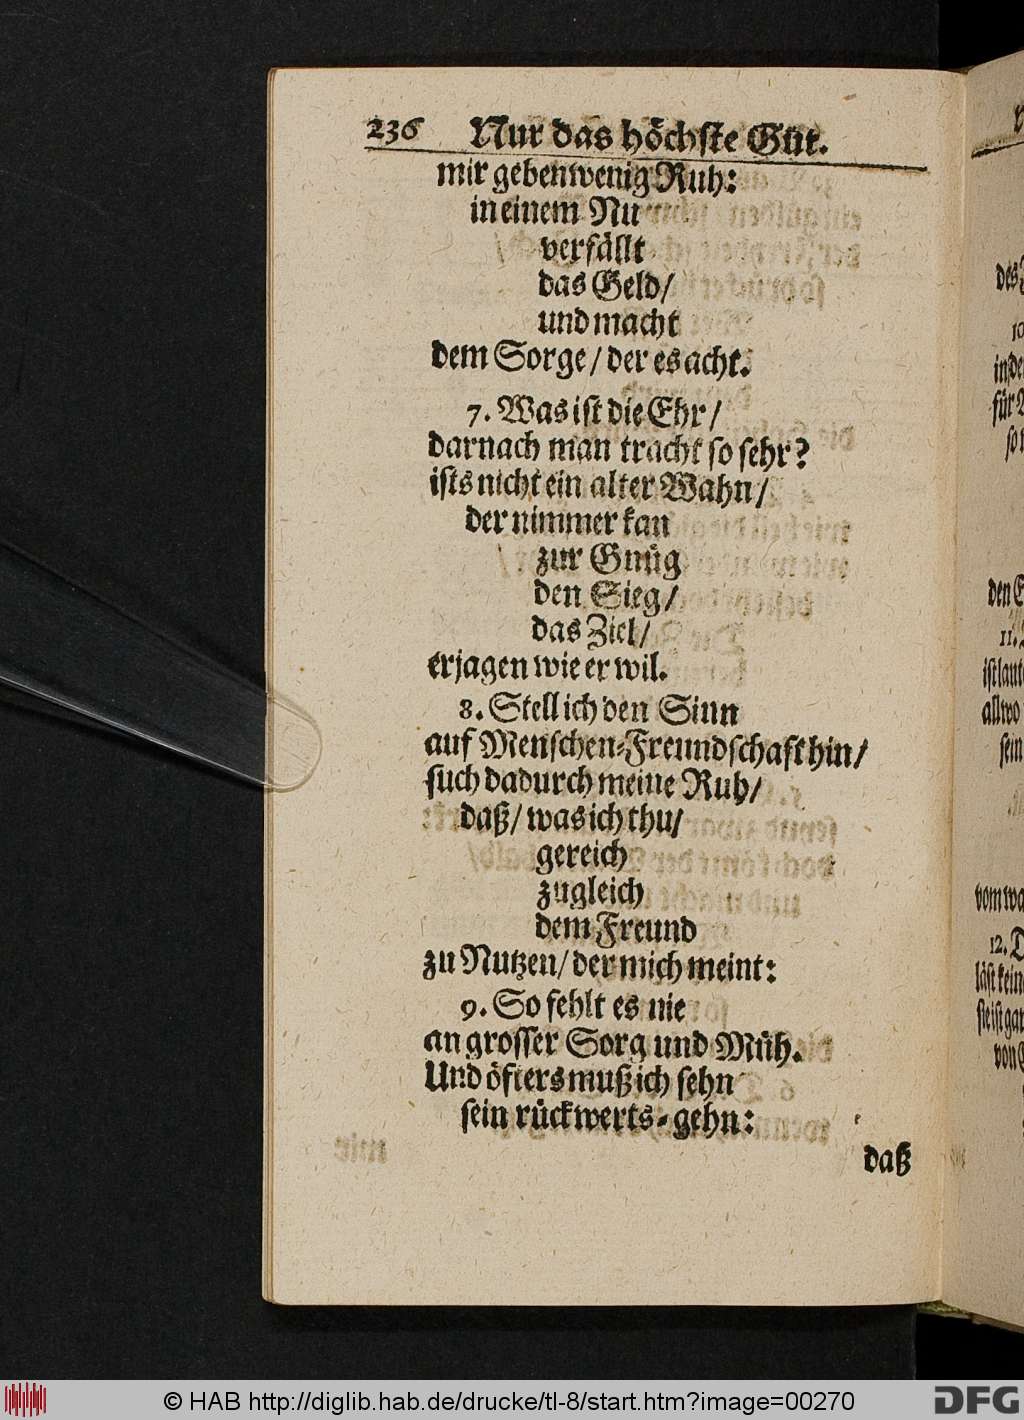 236 Nur das höchste Gut.
mir geben wenig Ruh:
in einem Nu
verfällt
das Geld/
und macht
dem Sorge/ der es acht.
7. Was ist die Ehr/
darnach man tracht so sehr?
ists nicht ein alter Wahn/
der nimmer kan
zur Gnüg
den Sieg/
das Ziel/
erjagen wie er wil.
8. Stell ich den Sinn
auf Menschen-Freundschaft hin/
such dadurch meine Ruh/
daß/ was ich thu/
gereich
zugleich
dem Freund
zu Nutzen/ der mich meint:
9. So fehlt es nie
an grosser Sorg und Müh.
Und öfters muß ich sehn
sein rückwerts-gehn:
daß
10
für
den
11.
allwo
sein
vom
12.
von
© HAB http://diglib.hab.de/drucke/tl-8/start.htm?image=00270
DFG